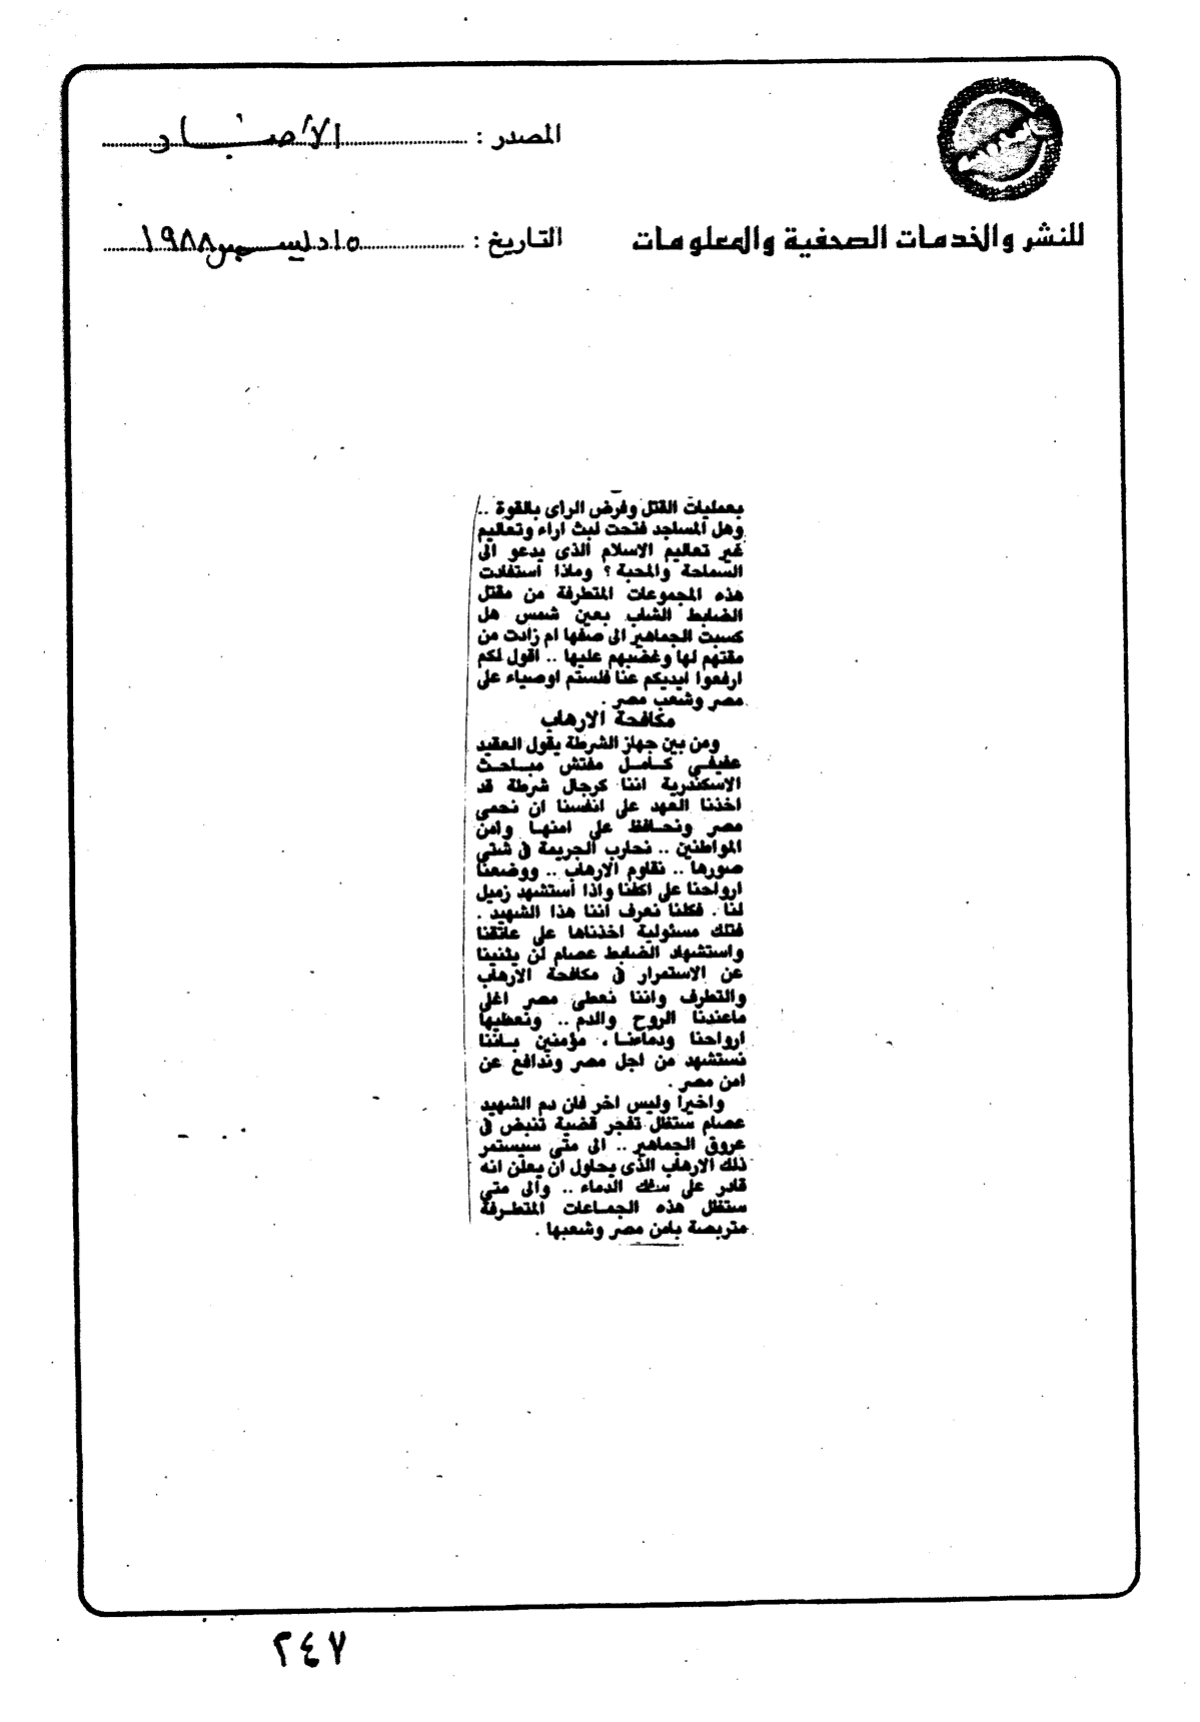 المصدر : الأخبار
للنشر والخدمات الصحفية والمعلومات
التاريخ : ١٥ ديسمبر ١٩٨٨
بعمليات القتل وفرض الراى بالقوة ..
وهل المساجد فتحت لبث اراء وتعاليم
غير تعاليم الاسلام الذى يدعو الى
السماحة والمحبة ؟ وماذا استفادت
هذه المجموعات المتطرفة من مقتل
الضابط الشاب بعين شمس هل
كسبت الجماهير الى صفها ام زادت من
مقتهم لها وغضبهم عليها .. اقول لكم
ارفعوا ايديكم عنا فلستم اوصياء على
مصر وشعب مصر .
مكافحة الارهاب
ومن بين جهاز الشرطة يقول العقيد
عفيفى كامل مفتش مباحث
الاسكندرية اننا كرجال شرطة قد
اخذنا العهد على انفسنا ان نحمى
مصر ونحافظ على امنها وامن
المواطنين .. نحارب الجريمة فى شتى
صورها .. نقاوم الارهاب .. ووضعنا
ارواحنا على اكفنا واذا استشهد زميل
لنا . فكلنا نعرف اننا هذا الشهيد .
فتلك مسئولية اخذناها على عاتقنا
واستشهاد الضابط عصام لن يثنينا
عن الاستمرار فى مكافحة الارهاب
والتطرف واننا نعطى مصر اغلى
ماعندنا الروح والدم .. ونعطيها
ارواحنا ودماءنا . مؤمنين باننا
نستشهد من اجل مصر وندافع عن
امن مصر .
واخيرا وليس اخر فان دم الشهيد
عصام ستظل تفجر قضية تنبض فى
عروق الجماهير .. الى متى سيستمر
ذلك الارهاب الذى يحاول ان يعلن انه
قادر على سفك الدماء .. والى متى
ستظل هذه الجماعات المتطرفة
متربصة بامن مصر وشعبها .
٢٤٧